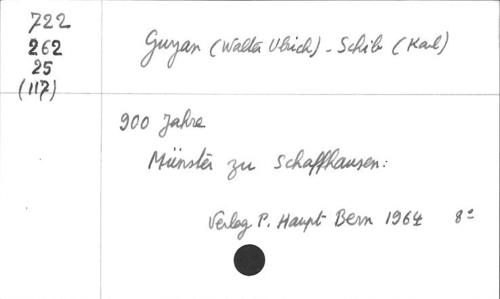 722
262
25
(117)
Guyan (Walter Ulrich) - Schib (Karl)
900 Jahre
Münster zu Schaffhausen:
Verlag P. Haupt Bern 1964 8°